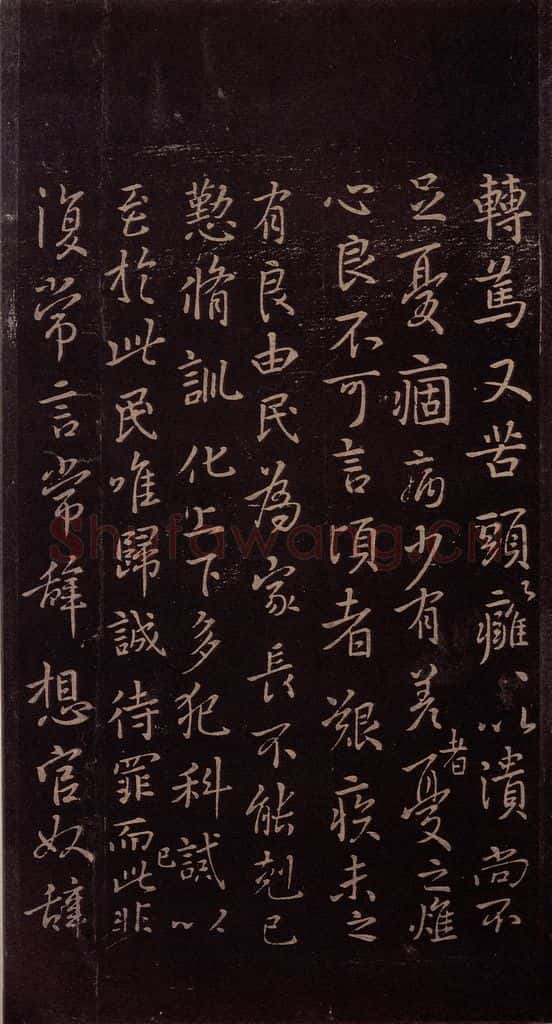 轉篤又苦頭〻癰〻以潰尚不
足憂痼病少有差者憂之燋
心良不可言頃者艱疾未之
有良由民為家長不能剋己
懃脩訓化上下多犯科誡以
至於此民唯歸誠待罪而已此非
復常言常辭想官奴辭
Shufawang.cn